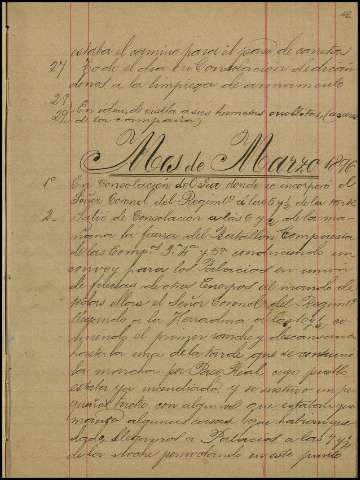 estaba el camino para el paso de carretas
27 Todo el dia en Consolacion dedican
donos a la limpieza de armamento
28
29 En
de la compañia,
Mes de Marzo 1896
1º En Consolación del Sur donde se incorporó el
Señor Coronel del Regimtº a las 5 y ½ de la tarde
2_ Salio de Consolación a las 6 y ½ de la ma
ñana la fuerza del Batallon Compuesta
de las Compªs 3ª 4ª y 5ª conduciendo un
convoy para los Palacios en union
de fuerzas de otros Cuerpos al mando de
todas ellas el Señor Coronel del Regimtº
llegando a la Herradura a las 10 y ½ co
miendo el primer rancho y descansando
hasta la una de la tarde que se continuo
la marcha por Paso Real cuyo pueblo
estaba ya incendiado y se sostuvo un pe
queño tiroteo con algunos que estaban que
mando algunas casas que habian que
dado, llegamos a Palacios a las 7 y ½
de la noche pernoctando en este punto